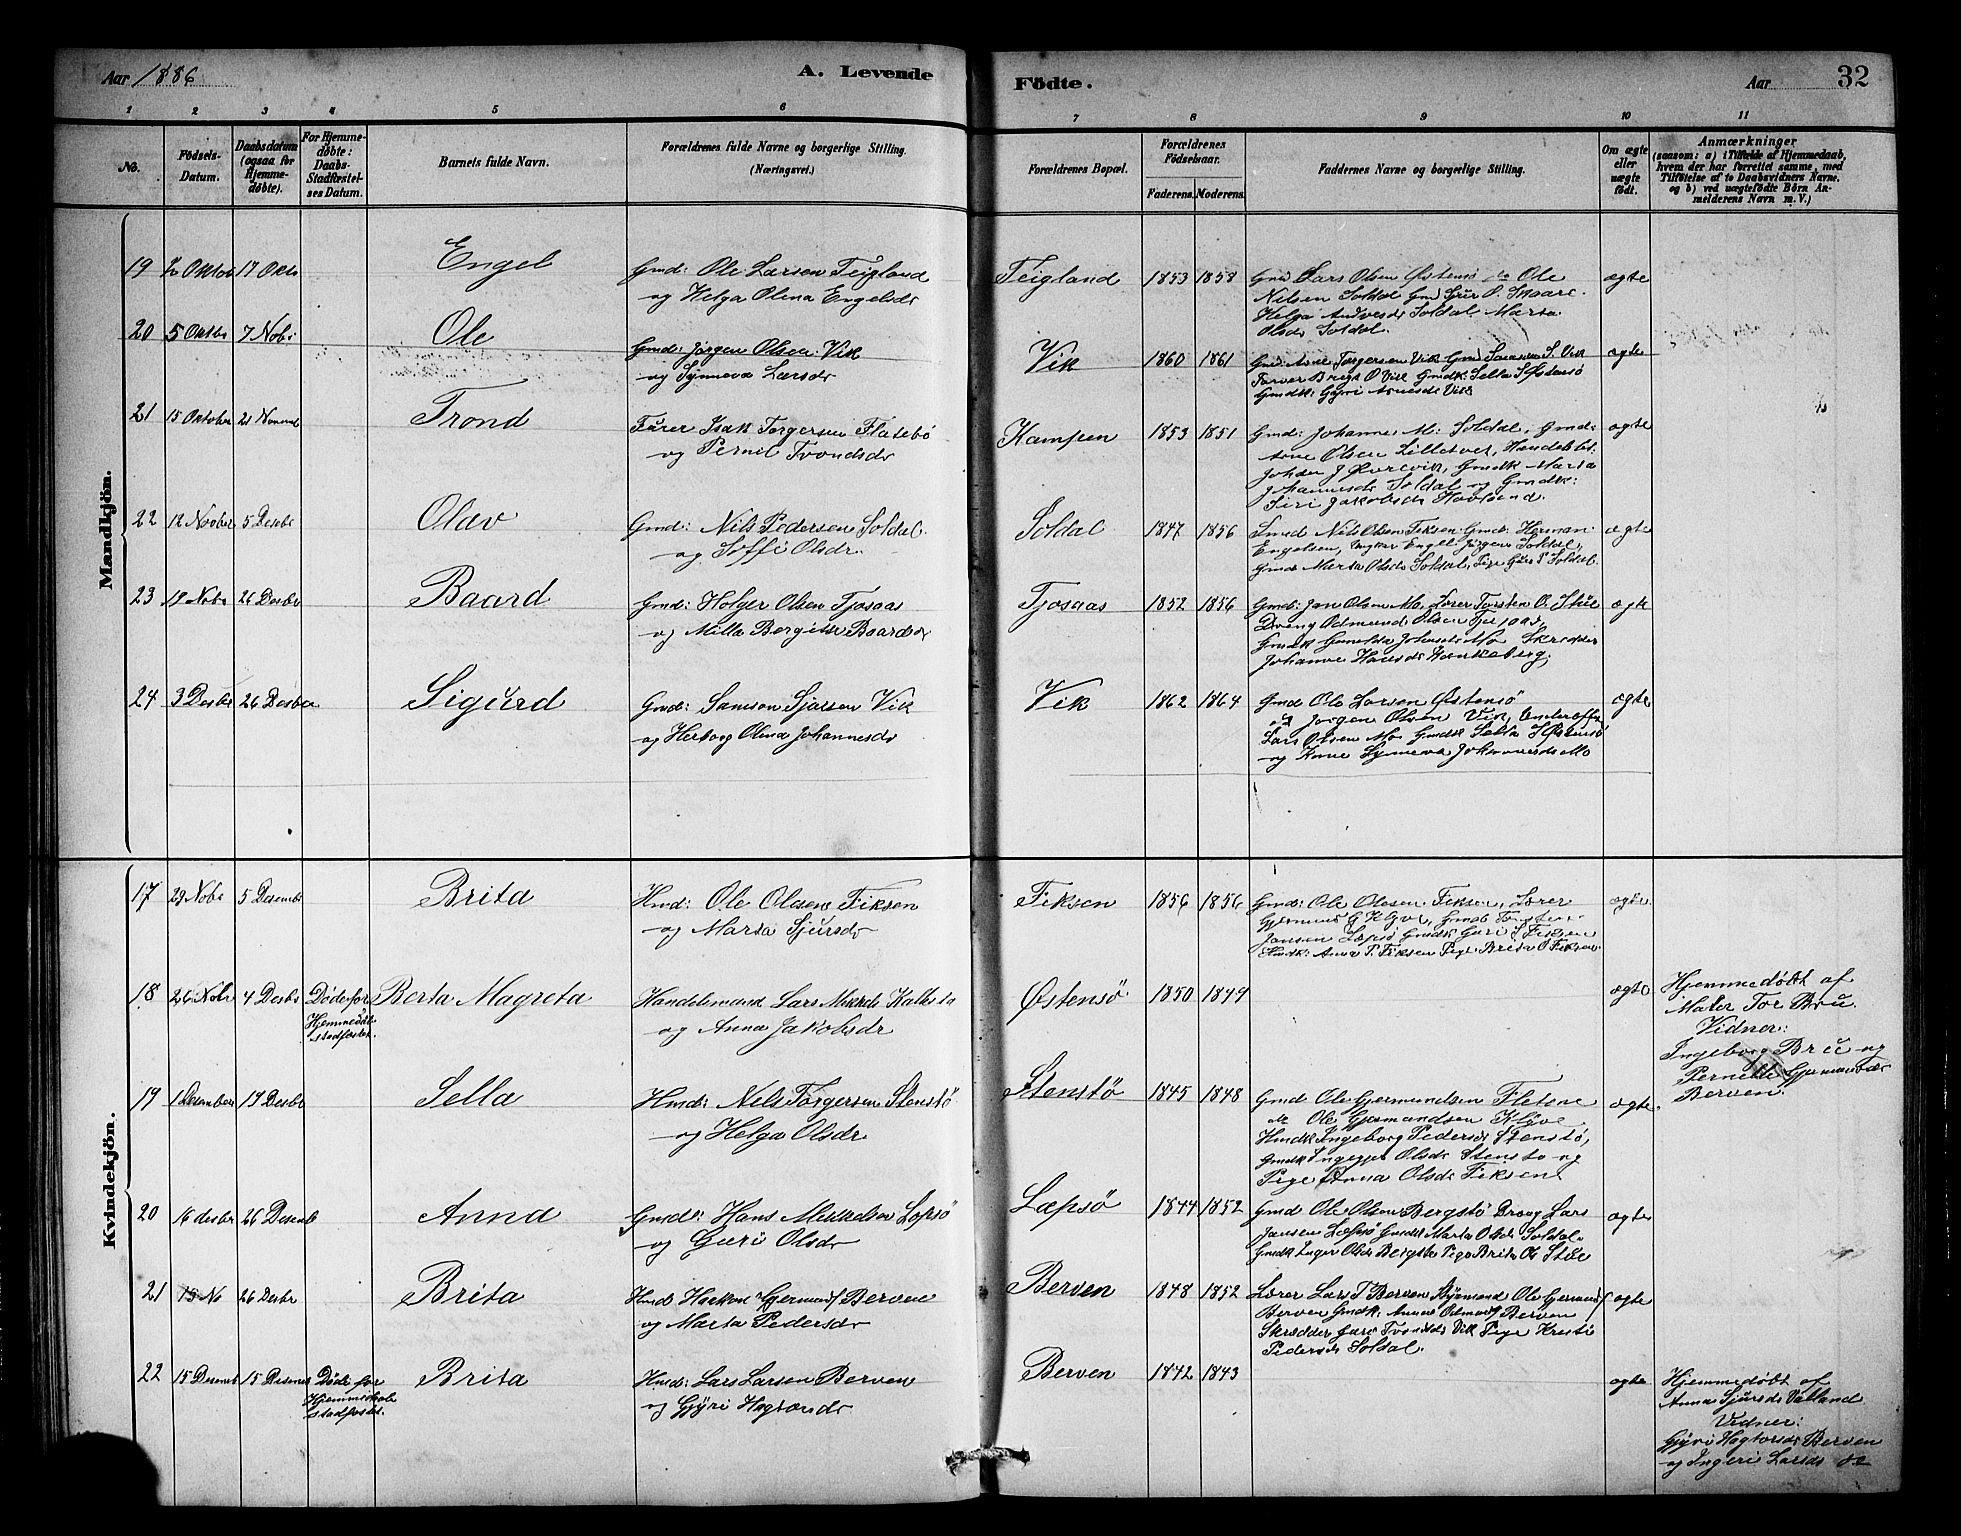 Aar 1886
A. Levende
Födte.
Aar
32
1 2 3 4 5 6 7 8 9 10 11
No.
Födsels-
Datum.
Daabsdatum
(ogsaa for
Hjemme-
døbte).
For Hjemme-
døbte:
Daabs-
Stadfæstel-
ses Datum.
Barnets fulde Navn.
Forældrenes fulde Navne og borgerlige Stilling.
(Næringsvei.)
Forældrenes Bopæl.
Forældrenes
Födselsaar.
Faderens. Moderens.
Faddernes Navne og borgerlige Stilling.
Om ægte
eller
uægte
födt.
Anmærkninger
(saasom: a) i Tilfælde af Hjemmedaab,
hvem der har forrettet samme, med
Tilföielse af to Daabsvidners Navne.
og b) ved uægtefödte Börn An-
melderens Navn m. V.)
Mandkjön.
19 Oktob 17 Okto Engel
Gmd: Ole Larsen Teigland
og Helga Olina Engelsdr
Teigland 1853 1858
Gmd Lars Olsen Østensø do Ole
Nilsen Soldal Gmd Sjur O. Skaare
Helga Soldal Marta
Olsdr Soldal.
ægte
20 5 Oktbr 7 Nobr Ole
Gmd: Jørgen Olsen Vik
og Synneva Larsdr
Vik 1860 1861
Gmd: Arne Torgersen Vik Gmd Samson S. Vik
Farver O Vik Gmdk: Sella S Østensø
Gmdk: Gyri Arnesdr Vik
ægte
21 15 Oktober 21 Trond
Furer Isak Torgersen Flatebø
og Pernil Trondsdr
Kampen 1853 1851
Gmd: Johannes M. Soldal, Gmd:
Arne Olsen Lilletvet, Handelsbet
Gmdk Marta
Soldal og Gmdk:
Siri Jakobsdr Hovland.
ægte
22 12 Novbr 5 Desbr Olav
Gmd: Nils Pedersen Soldal.
og Soffi Olsdr.
Soldal 1847 1856
Smed Nils Olsen Fiksen Gmd: Herman
Engelsen, Ungkar Engel Jørgens Soldal,
Gmd Marta Olsdr Soldal, Pige Guri P Soldal.
ægte
23 18 Nobr 26 Desbr Baard
Gmd: Holger Olsen Tjosaas
og Milla Bergitte Baardsdr
Tjosaas 1852 1856
Gmd: Jan Olsen Mo, Lærer Torsten O. Stue
Dreng Odmund Olsen Tjosaas,
Gmdk Gunelda Johansdr Mo Skredder
Johanne Hansdr
ægte
24 3 Desbr 26 Desber Sigurd
Gmd: Samson Sjursen Vik
og Herborg Olina Johannesdr
Vik 1862 1864
Gmd Ole Larsen Østensø
og Jørgen Olsen Vik, Underoff
Lars Olsen Mo Gmdk Sella S Østensø
og Kone Synneva Johannesdr Mo
ægte
Kvindekjön.
17 29 Nobr 5 Desembr Brita
Hmd: Ole Olesen Fiksen
og Marta Sjursdr
Fiksen 1856 1856
Gmd: Ole Olesen Fiksen, Lærer
Gjermund G Kløve, Gmd Torsten
Jansen Lepsø Gmdk Guri S Fiksen
Hmdk: Anna P. Fiksen Pige Brita O Fiksen
ægte
18 26 Nobr 4 Desbr Døde før
Hjemmedåb
stadfæstet.
Berta Magreta
Handelsmand Lars Mikkels
og Anna Jakobsdr
Østensø 1850 1849
ægte
Hjemmedøbt af
Maler Tor Bru.
Vidner:
Ingeborg Bru og
Pernille Gjermundsdr
Berven.
19 1 Desember 19 Desbr Sella
Hmd: Nels Torgersen Stenstø
og Helga Olsdr
Stenstø 1845 1848
Gmd Ole Gjermundsen Fletene
do Ole Gjermundsen Kløve
Hmdk Ingeborg Pedersdr Stenstø,
Gmdk Olsdr Stenstø og
Pige Anna Olsdr Fiksen
ægte.
20 16 desbr 26 Desemb Anna
Gmdk: Hans Mikkelsen Lepsø
og Guri Olsdr
Læpsø 1844 1852
Gmd Ole Olsen Bergstø Dreng Lars
Jansen Læpsø Gmdk Marta Olsdr Soldal
Gmdk Inger Olsdr Bergstø Pige Brita O. Stue
ægte
21 No 26 Desbr Brita
Hmd: Haakon Gjermunds Berven
og Marta Pedersdr
Berven 1848 1852
Lærer Lars T Berven Ole Gjermunds
Berven Gmdk. Anna Berven
Skrædder Trondsdr Vik Pige Kristi
Pedersdr Soldal.
ægte
22 15 Desemb 15 Desemb Døde før
Hjemmedåbs
stadfæstet.
Brita
Hmd: Lars Larsen Berven
og Gjyri Hagtorsdr
Berven 1842 1843
ægte
Hjemmedøbt af
Anna Sjursdr
Vidner:
Gjyri Hagtorsdr Berven
og Ingeri Larsdr do